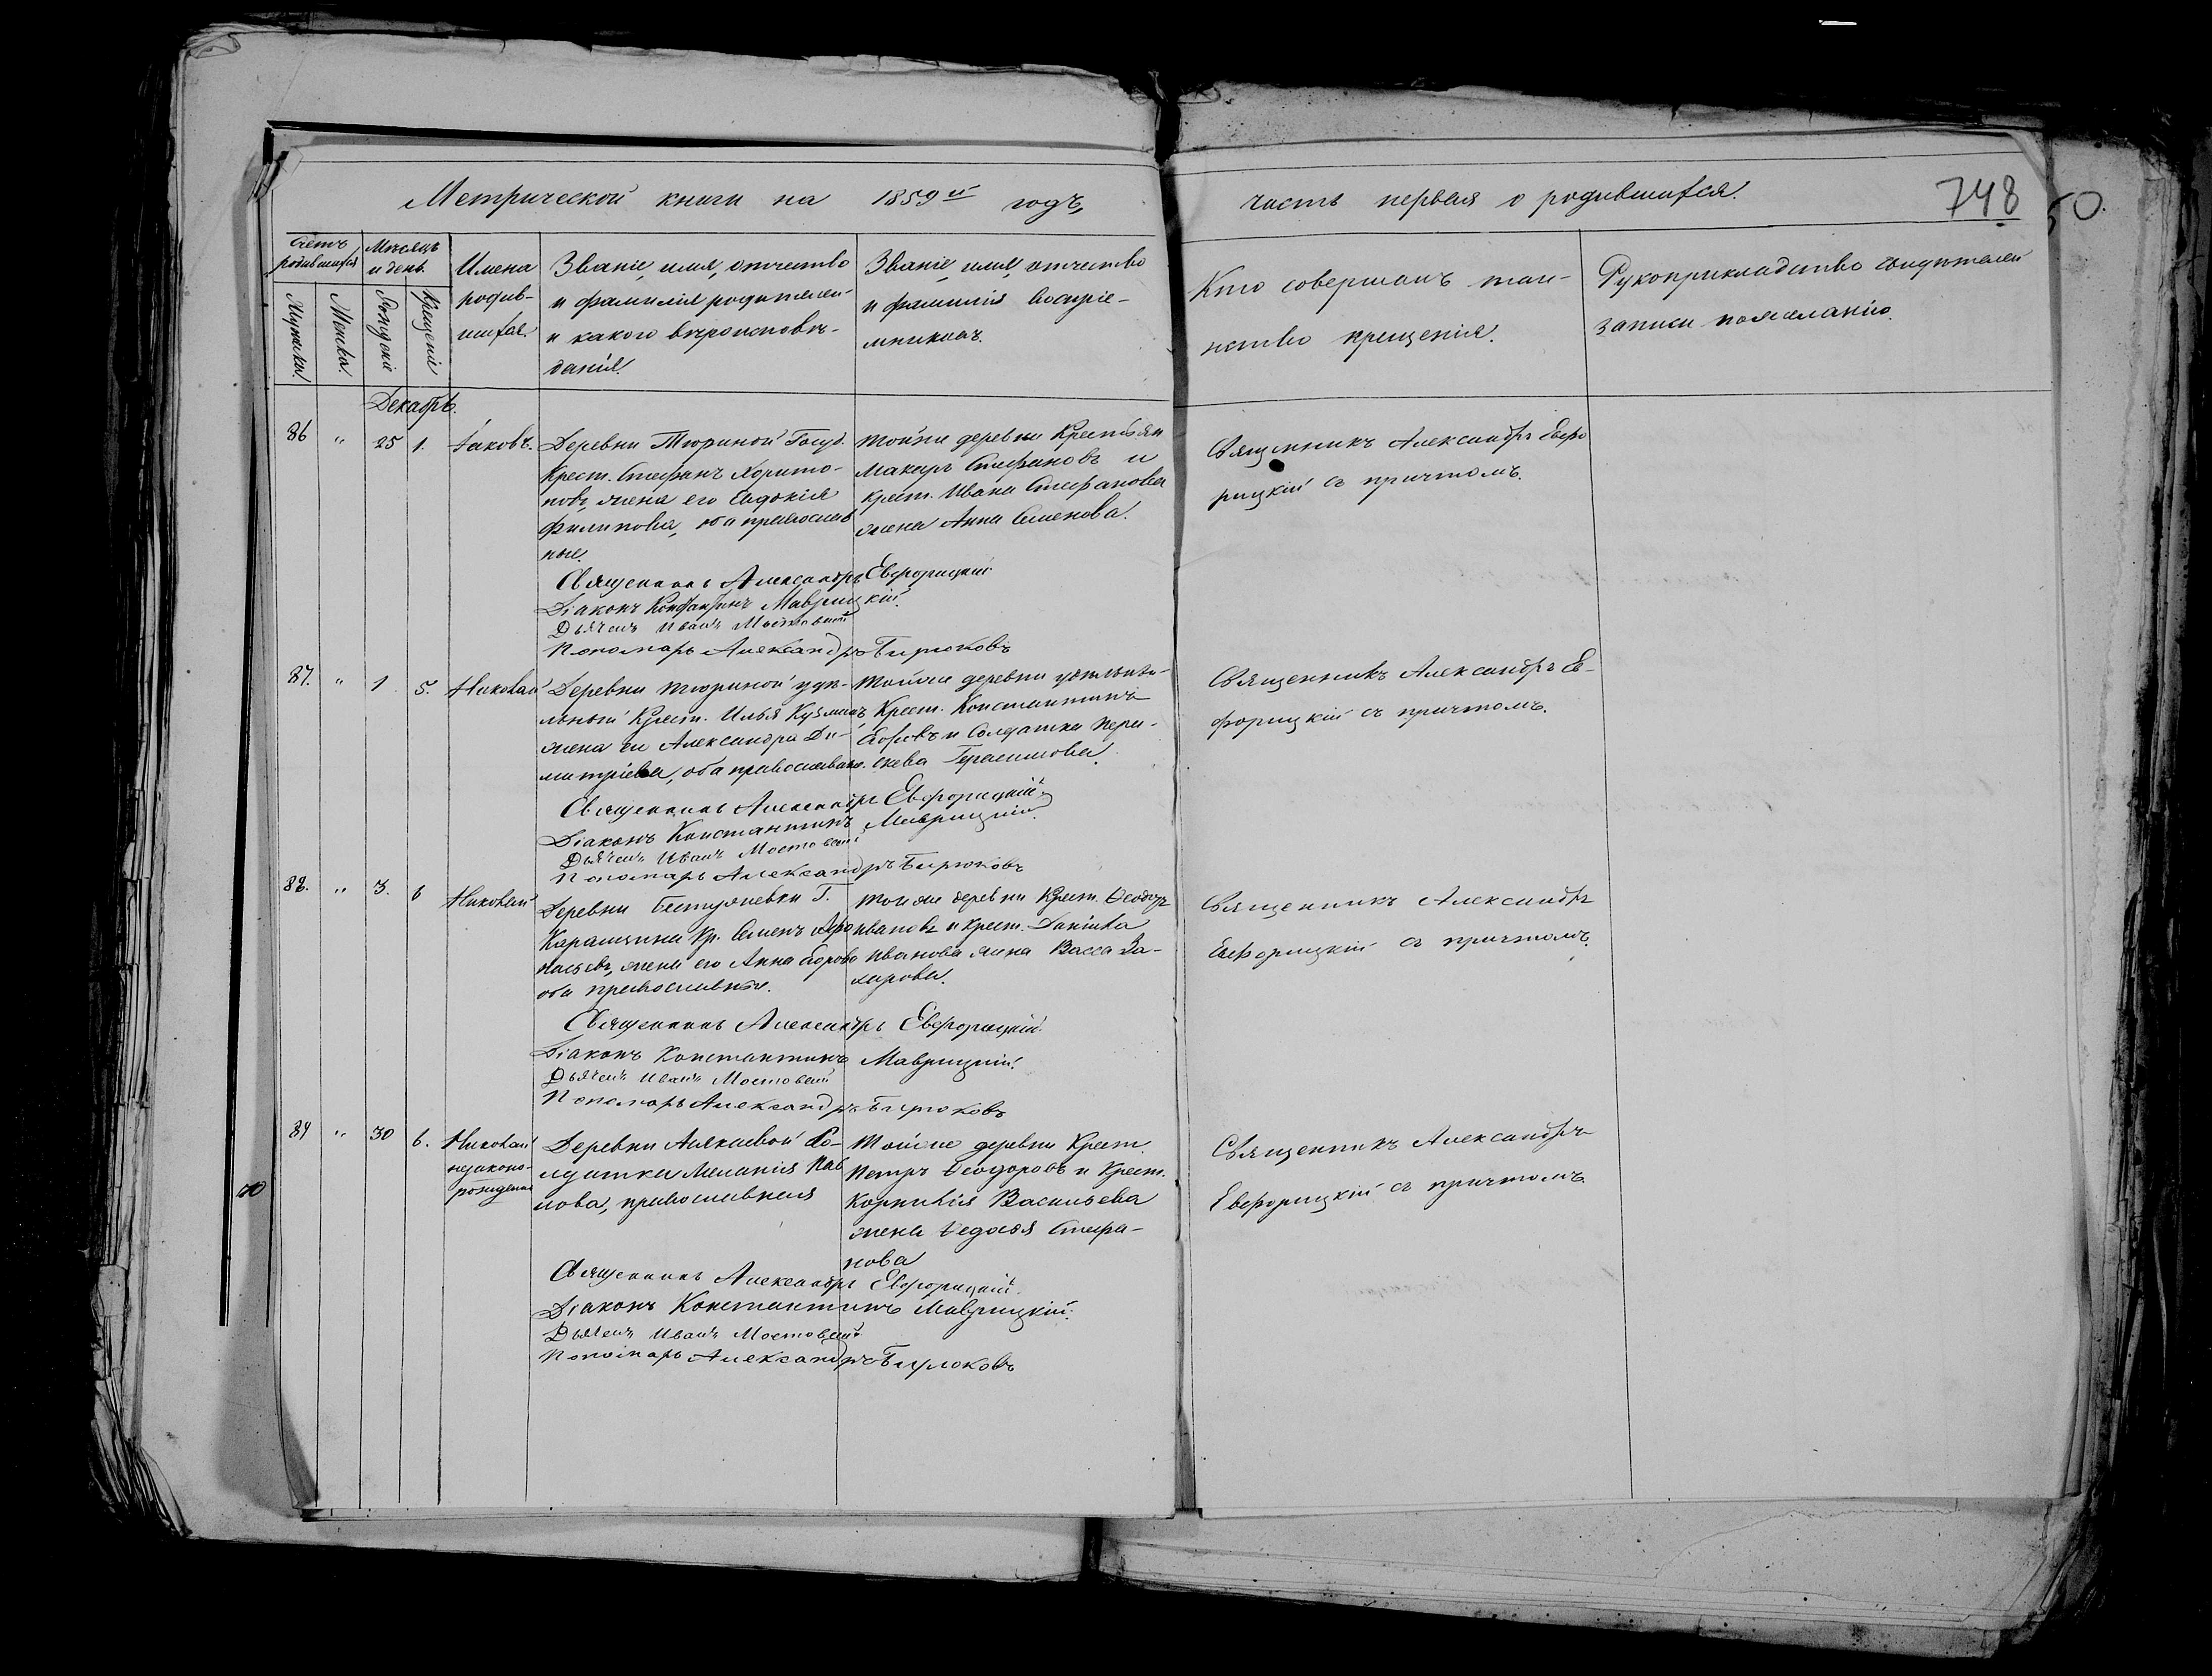 Метрической книги на 1859й годъ,
часть первая о родившихся.
748
50.
Счетъ родившихся
Мѣсяцъ и день.
Мужска.
Женска.
Рожденіе
Крещеніе
Имена
родив-
шихся.
Званіе, имя, отчество
и фамилія родителей
и какого вѣроисповѣ-
данія.
Званіе, имя, отчество
и фамилія воспріе-
мниковъ.
Кто совершалъ таи-
нство крещенія.
Рукоприкладство свидѣтелей
записи по желанію.
Декабрь.
86 " 25 1. Іаковъ.
Деревни Тюриной Госуд.
Крест. Стефанъ Харито-
новъ, жена его Евдокія
Филипова, оба православ
ные.
Тойже деревни Крестьян
Макаръ Стефановъ и
крест. Ивана Стефанова
жена Анна Семенова.
Священникъ Александръ Евфо
рицкій съ причтомъ.
Священникъ Александръ Евфорицкій
Діаконъ Константинъ Маврицкій.
Дьячекъ Иванъ Мостовскій
Пономарь Александръ Бирюковъ
87. " 1 5. Николай
Деревни Тюриной удѣ-
льный Крест. Илья Кузминъ
жена его Александра Ди-
митріева, оба православн.
Тойже деревни удѣльны-
Крест. Константинъ
Егоровъ и Солдатка Пара-
скева Герасимова.
Священникъ Александръ Ев-
форицкій съ причтомъ.
Священникъ Александръ Евфорицкій
Діаконъ Константинъ Маврицкій.
Дьячекъ Иванъ Мостовскій
Пономарь Александръ Бирюковъ
88. " 3. 6 Николай
Деревни Бестужевки Г.
Карамзина Кр. Семенъ Афа
насьевъ, жена его Анна Егорова
оба православные.
Тойже деревни Крест. Ѳеодоръ
Ивановъ и крест. Даніила
Иванова жена Васса За-
харова.
Священникъ Александръ
Евфорицкій съ причтомъ.
Священникъ Александръ Евфорицкій
Діаконъ Константинъ Маврицкій.
Дьячекъ Иванъ Мостовскій
Пономарь Александръ Бирюковъ
89 " 30 6. Николай
незаконо-
рожденный
Деревни Алякаевой Со-
лдатка Меланія Пав
лова, православная
Тойже деревни Крест.
Петръ Ѳеодоровъ и Крест.
Корнилія Васильева
жена Ѳедосья Стефа-
нова
Священникъ Александръ
Евфорицкій съ причтомъ.
Священникъ Александръ Евфорицкій.
Діаконъ Константинъ Маврицкій.
Дьячекъ Иванъ Мостовскій
Пономарь Александръ Бирюковъ